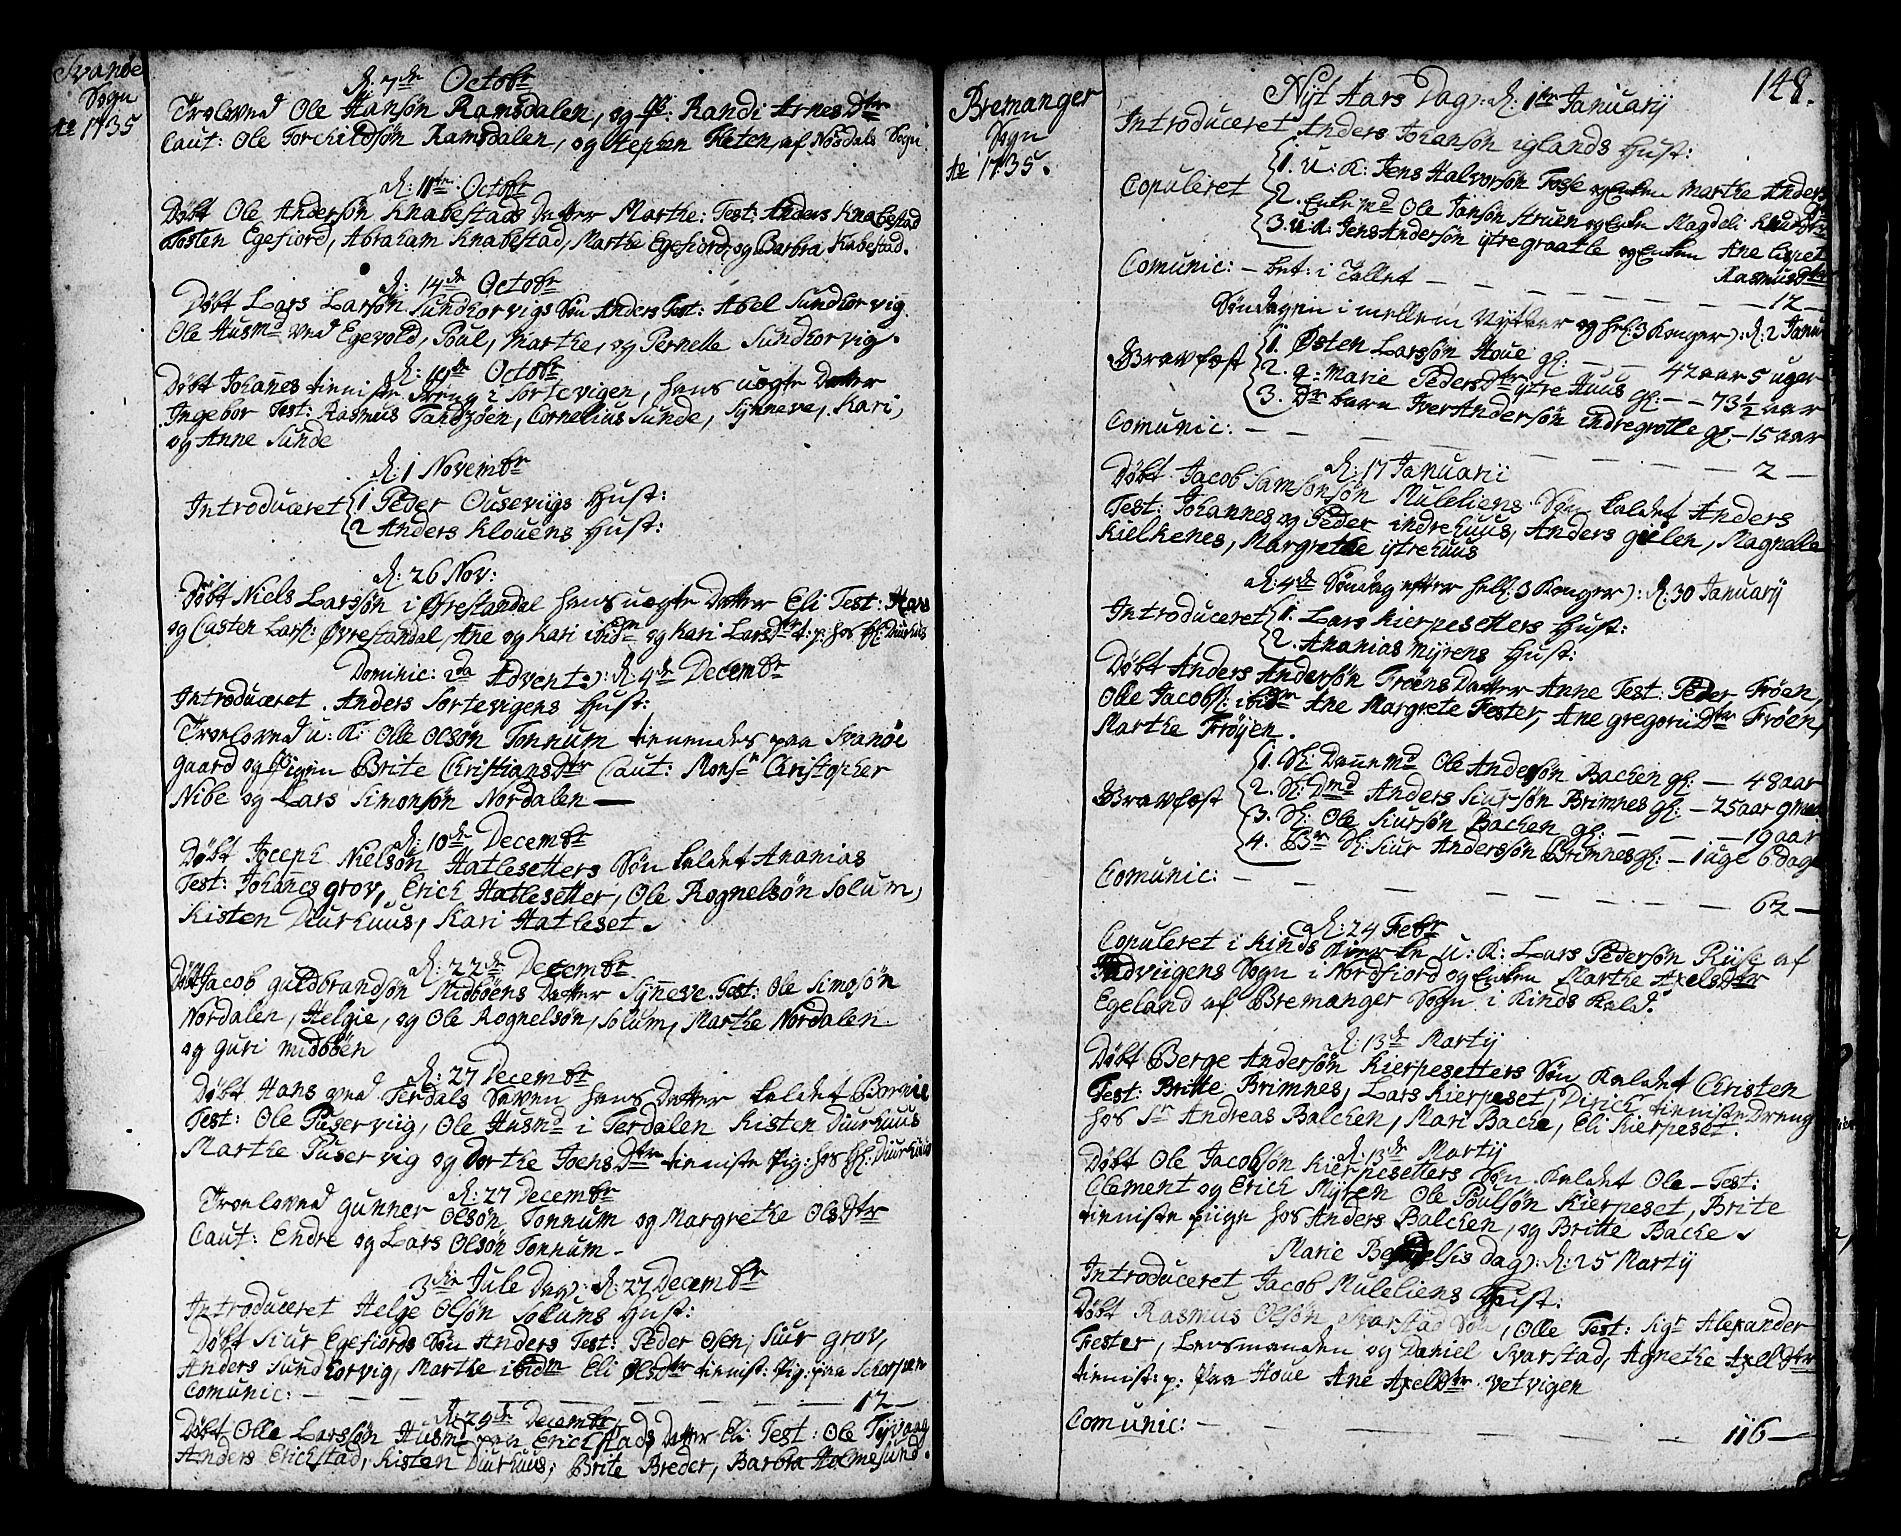 Svanøe
Sogn
Ao 1735
d: 7de Octobr
Troloved Ole Hansøn Ramsdalen, og P: Randi Arnes Dtr
Caut: Ole Torchildsøn Ramsdalen, og Stephen Fleten, af Nosdals Sogn.
d: 11te Octobr
Døbt Ole Andersøn Knabestads Datter Marthe: Test: Anders Knabestad
Tosten Egefiord, Abraham Knabestad, Marthe Egefiord, og Barbra Kabestad.
d: 14de Octobr
Døbt Lars Larsøn Sundhorvigs Søn Anders Test: Abel Sundhorvig
Ole Husmd ved Egevold, Poul, Marthe, og Pernelle Sundhorvig.
d: 19de Octobr
Døbt Johanes tieniste Dreng i Sortevigen, hans uægte Datter
Ingebor Test: Rasmus Sandzøen, Cornelius Sunde, Synneve, Kari,
og Anne Sunde
d: 1 Novembr
Introduceret 1 Peder Ouseviigs Hust:
2 Anders Klouens Hust:
d: 26 Nov:
Døbt Niels Larssøn i Øvrestandal hans uægte Datter Eli Test: Hans
og Casten Lars: Øvrestandal, Ane og Kari ibidm og Kari Larsdtr t: p: hos Hl: Diurhuus
Dominic: 2da Advent:): d: 4de Decembr
Introduceret Anders Sortevigens Hust:
Troloved u: K: Olle Olsøn Tonnum tienendes paa Svanøe
gaard og Pigen Brite Christiansdtr Caut: Monsr Christopher
Nibe og Lars Simonsøn Nordalen —
d: 10de Decembr
Døbt Joseph Nielsøn Hatlesetters Søn kaldet Ananias
Test: Johanes grov, Erich Hatlesetter, Ole Rognelsøn Solum,
Kisten Diurhuus, Kari Hatleset.
d: 22de Decembr
Døbt Jacob guldbrandsøn Midbøens Datter Syneve. Test: Ole Simosøn
Nordalen, Helgie, og Ole Rognelsøn, Solum, Marthe Nordalen
og guri midbøen
d: 27 Decembr
Døbt Hans ved Terdals Saven hans Datter kaldet Bornil
Test: Ole Puserviig, Ole Husmd i Terdalen Kisten Diurhuus
Marthe Puservig og Dorthe Joens Dtr tieniste Pig: hos Hl: Diurhuus
d: 27 Decembr
Troloved gunner Olsøn, Tonnum og Margrethe Olsdtr
Caut: Endre og Lars Olsøn Tonnum —
3die Jule Dag: d: 27 Decembr
Introduceret Helge Olsøn Solums Hust:
Døbt Siur Egefiords Søn Anders Test: Peder Osen, Siur grov,
Anders Sundhorvig, Marthe ibidm Eli Olsdtr tienist: Pig: paa Scharpen
Comunic: — — — 12 —
d: 29de Decembr
Døbt Olle Larssøn Husmd paa Erichstads Datter Eli Test: Ole Tyvaag
Anders Erichstad, Kisten Diurhuus, Brite Breder, Barbra Holmesund.
Bremanger
Sogn
Ao 1735.
148.
Nyt Aars Dag): d: 1ste Januarij
Introduceret Anders Johansøn iglands Hust:
Copuleret 1. u: K: Jens Halvorsøn Fosse og Enken Marthe Anders
Dtr
2. Enkemd Ole Jansøn Struen og Enken Magdeli Knudsdtr
3. u. K. Jens Andersøn ytregraatle og Enken Ane Lisbet
Rasmusdtr
Comunic: — bet: i Tallet — — — 12 —
Søndagen imellem Nytaar og hel: 3 Konger): d: 2 Janu
Gravfæst 1. Østen Larssøn Houe gl: — 42 aar 5 uger
2. q: Marie Pedersdtr ytre Huus gl: — — 73 1/2 aar
3. Dr barn Iver Andersøn indregrotle gl: — 15 aar
Comunic: — — — 2 —
d: 17 Januarii
Døbt Jacob Samsonsøn Muleliens Søn kaldet Anders
Test: Johannes og Peder indrehuus, Anders gielen, Magnelle
Kielkenes, Margrethe ytrehuus
d: 4de Søndag efter hell: 3 Konger): d: 30 Januarij
Introduceret 1. Lars Kierpesetters Hust:
2. Ananias myrens Hust:
Døbt Anders Andersøn Frøens Datter Anne Test: Peder Frøen,
Olle Jacobs: ibidm Ane Margrete Fester, Ane gregoridtr Frøen,
Marthe Frøyen.
Gravfæst 1. Sl: Dannemd Ole Andersøn Backen gl: — 48 aar
2. Sl: Dmd Anders Siursøn Brimnes gl: — 25 aar 9 m
3. Sl: Ole Siursøn Backen gl: — — — 19 aar
4. Br Sl: Siur Anderssøn Brimnes gl: — 1 uge 6 dage
Comunic: — — — 62 —
d: 24 Febr
Copuleret i Kinds Kircke u: K: Lars Pedersøn Riise af
Indviigens Sogn i Nordfiord og Enken Marthe Axelsdtr
Egeland af Bremanger Sogn i Kinds Kald.
d: 13de Martij
Døbt Berge Andersøn Kierpesetters Søn Kaldet Christen
Test: Britte Brimnes, Lars Kierpeset, Dirich tieniste Dreng
hos Sr Andreas Balchen, Mari Backe, Eli Kierpeset.
d: 13de Martij
Døbt Ole Jacobsøn Kierpesetters Søn Kaldet Ole — Test:
Clement og Erich Myren Ole Poulsøn Kierpeset, Brite
tieniste piige hos Anders Balchen, og Britte Backe.
Marie Beg elsis dag): d: 25 Martij
Introduceret Jacob Muleliens Hust:
Døbt Rasmus Olsøn Svarstad Søn, Olle Test: Sigr Alexander
Fester, Lensmanden og Daniel Svarstad, Agnethe Axelsdtr
tienist: p: paa Houe Ane Axelsdtr Vetvigen
Comunic: — — — 116 —